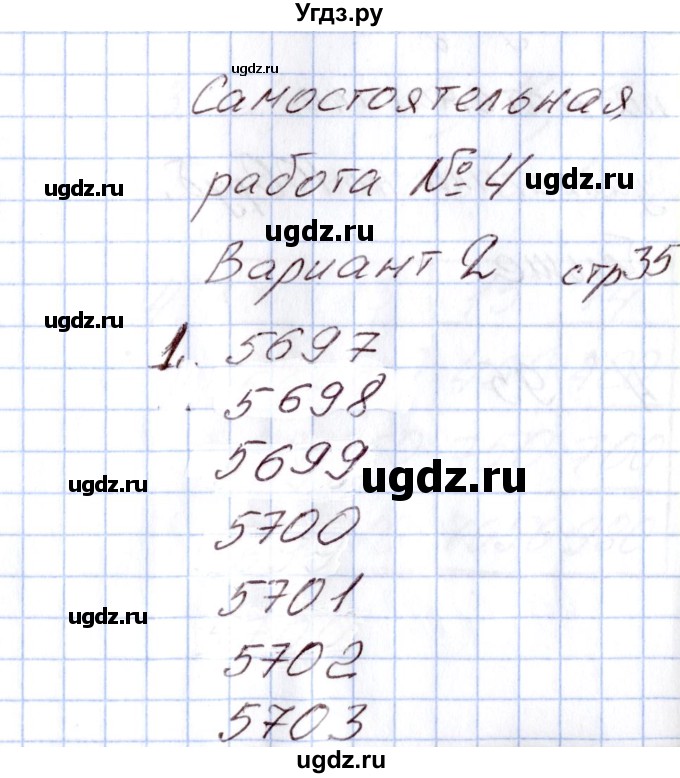 Угдз.ру
ugdz.ru
Самостоятельная
ugdz.ru работа № 4 ugdz.ru
ugdz.ru
Вариант 2 стр 35
ugdz.ru
1. 5697
5698
5699 ugdz.ru
ugdz.ru
5700
5701
ugdz.ru
5702
5703
ugdz.ru